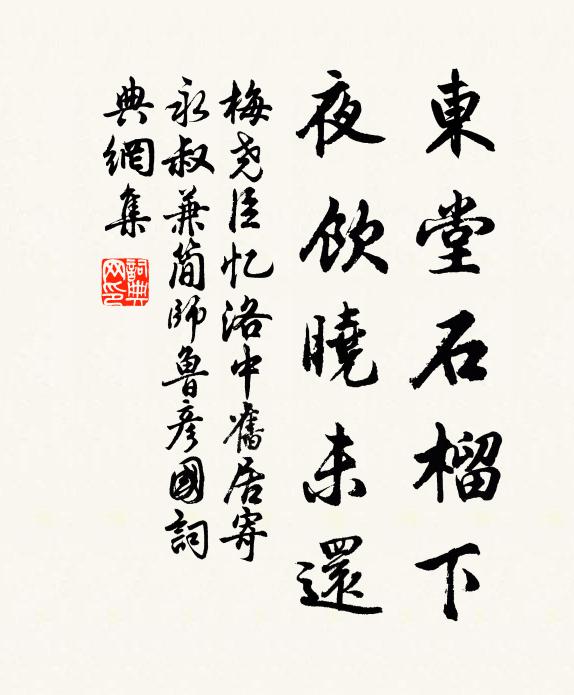 東堂石榴下
夜飲曉未還
梅尧臣忆洛中舊居寄
永叔兼简師魯彦國詞
典網集
詞典网印